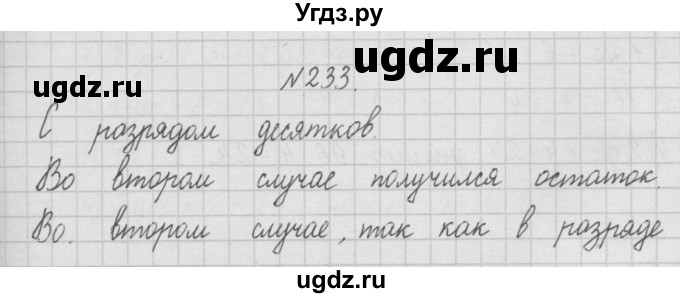 Угдз.ру
ugdz.ru
ugdz.ru
№233.
С разрядом десятков.
Во втором случае получился остаток.
Во. втором случае, так как в разряде
ugdz.ru